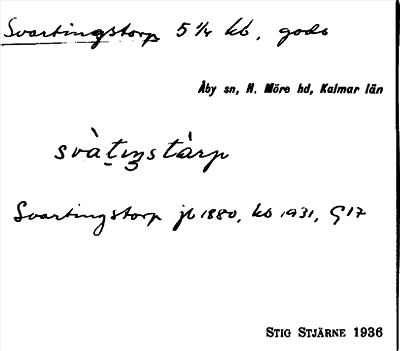 Svartingstorp 5 1/4 kb, gods
Åby sn, N. Möre hd, Kalmar län
svàtıŋstàrp
Svartingstorp jb 1880, kb 1931, G 17
STIG STJÄRNE 1936